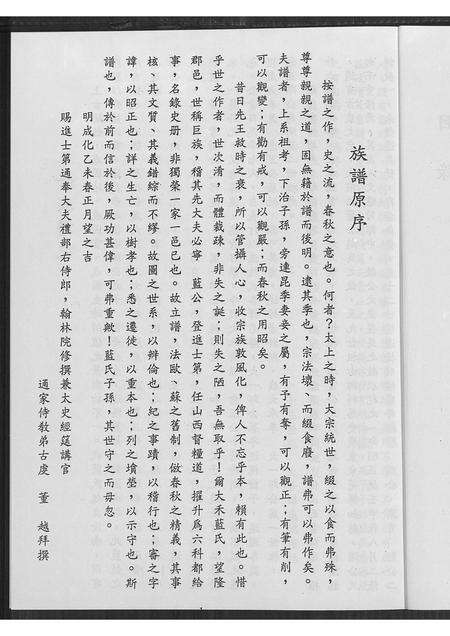 族譜原序
按譜之作，史之流，春秋之意也。何者？太上之時，大宗統世，綴之以食而弗殊，
尊尊親親之道，固無藉於譜而後明。逮其季也，宗法壞、而綴食廢，譜弗可以弗作矣。
夫譜者，上系祖考，下治子孫，旁連昆季妻妾之屬，有予有奪，可以觀正；有筆有削，
可以觀變；有勸有戒，可以觀嚴；而春秋之用昭矣。
昔日先王救時之衰，所以管攝人心，收宗族敦風化，俾人不忘乎本，賴有此也。惜
乎世之作者，世次淆，而體裁疎，非失之誕；則失之陋，吾無取乎！爾大禾藍氏，望隆
郡邑，世稱巨族，稽其先大夫必寧　藍公，登進士第，任山西督糧道，擢升為六科都給
事，名錄史册，非獨榮一家一邑已也。故立譜，法歐、蘇之舊制，倣春秋之精義，其事
核、其文質、其義錯綜而不繆。故圖之世系，以辨倫也；紀之事蹟，以稽行也；審之字
諱，以昭正也；詳之生亡，以樹孝也；悉之遷徙，以重本也；列之墳塋，以示守也。斯
譜也，傳於前而信於後，厥功甚偉，可弗重歟！藍氏子孫，其世守之而毋忽。
明成化乙未春正月望之吉
賜進士第通奉大夫禮部右侍郎，翰林院修撰兼太史經筵講官
通家侍教弟古虔　董　越拜撰